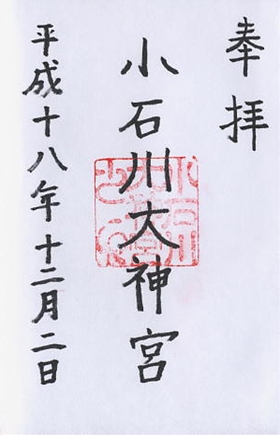 奉拝
小石川大神宮
平成十八年十二月二日